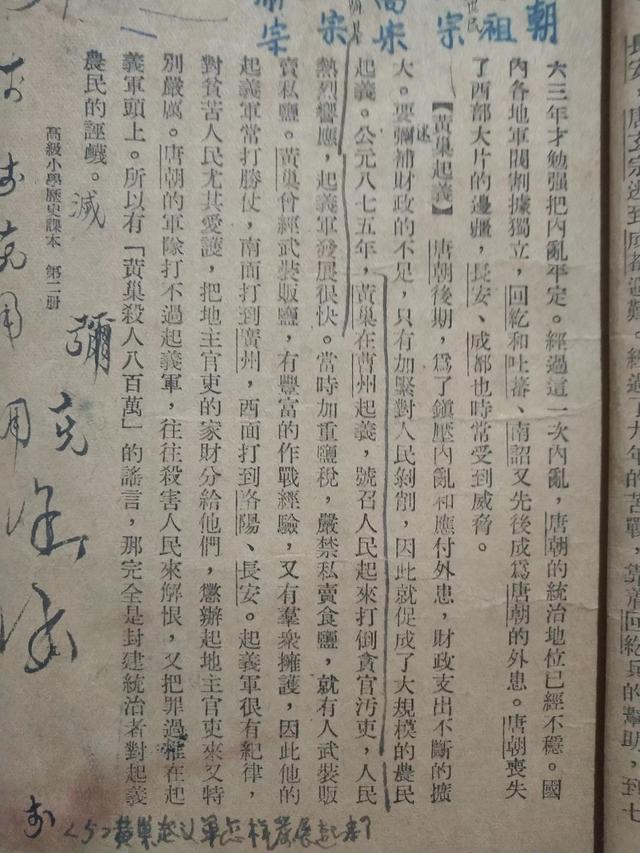 長安，唐玄宗逃到成都避難。經過
九年的苦戰，靠着回紇兵的幫助，到七
朝
祖
宗
高宗
宗
宗
六三年才勉强把內亂平定。經過這一次內亂，唐朝的統治地位已經不穩。國
內各地軍閥割據獨立，回紇和吐蕃、南詔又先後成爲唐朝的外患。唐朝喪失
了西部大片的邊疆，長安、成都也時常受到威脅。
【黃巢起義】　唐朝後期，爲了鎭壓內亂和應付外患，財政支出不斷的擴
大。要彌補財政的不足，只有加緊對人民剝削，因此就促成了大規模的農民
起義。公元八七五年，黃巢在曹州起義，號召人民起來打倒貪官汚吏，人民
熱烈響應，起義軍發展很快。當時加重鹽稅，嚴禁私賣食鹽，就有人武裝販
賣私鹽。黃巢曾經武裝販鹽，有豐富的作戰經驗，又有羣衆擁護，因此他的
起義軍當打勝仗，南面打到廣州，西面打到洛陽、長安。起義軍很有紀律，
對貧苦人民尤其愛護，把地主官吏的家財分給他們，懲辦起地主官吏來又特
別嚴厲。唐朝的軍隊打不過起義軍，往往殺害人民來解恨，又把罪過推在起
義軍頭上。所以有「黃巢殺人八百萬」的謠言，那完全是封建統治者對起義
農民的誣衊。
滅
彌
充
高級小學歷史課本　第二册
用
用
<5>黄巢起义軍怎样發展起來?